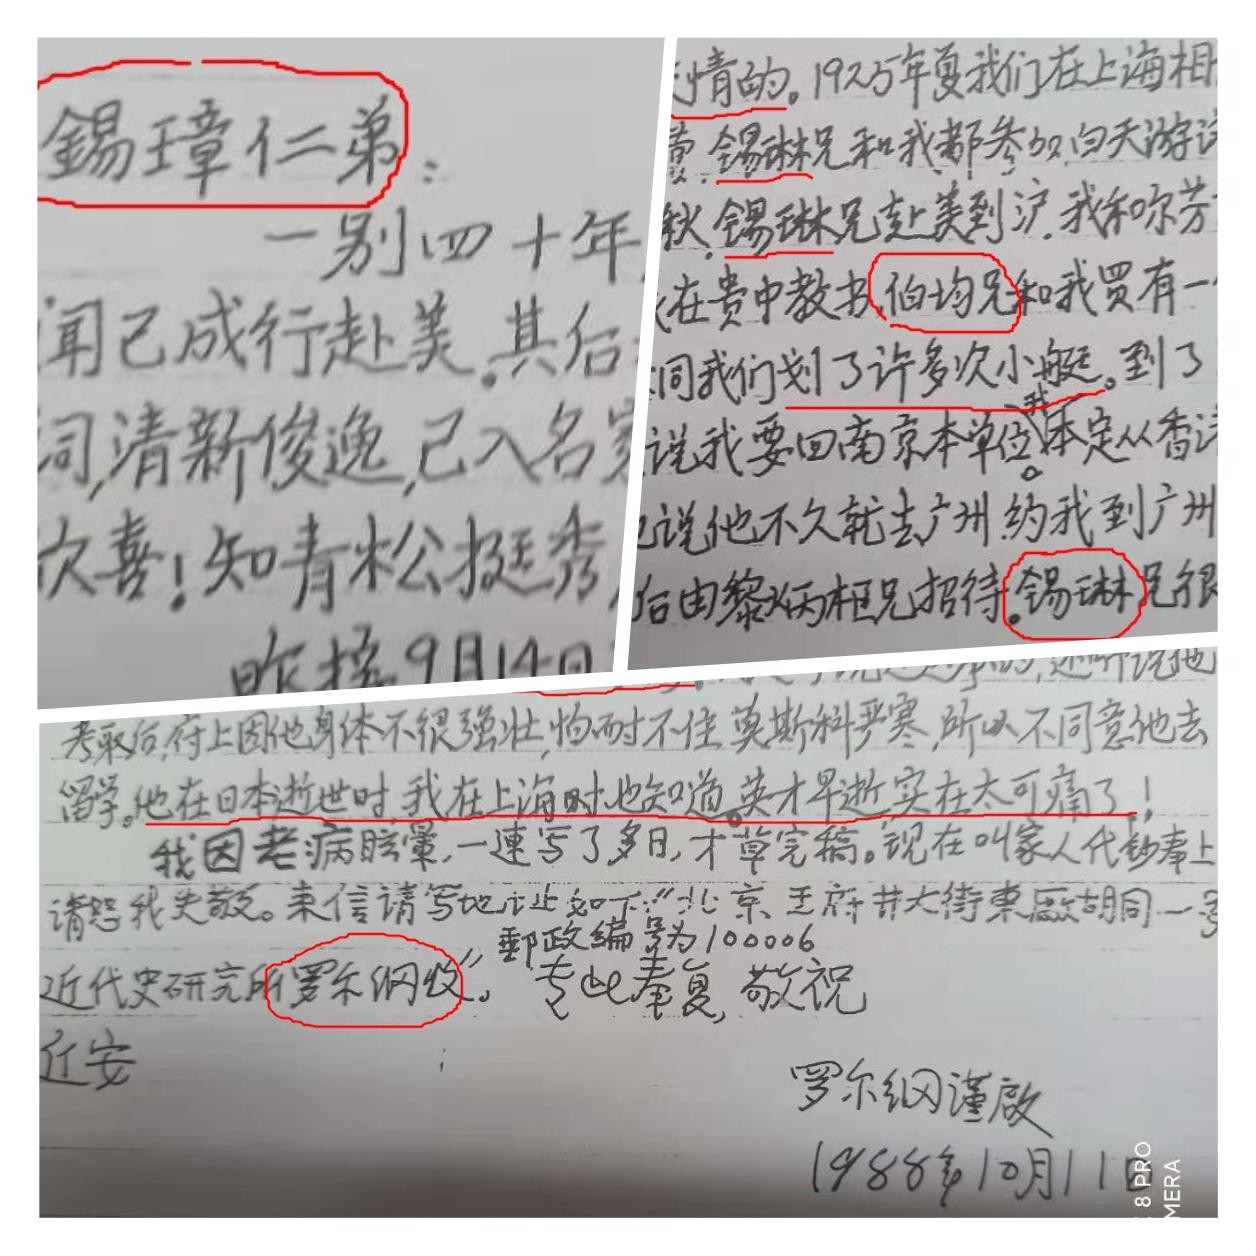 錫璋仁弟：
一别四十年
闻已成行赴美。其后
词,清新俊逸,已入名家
欣喜!知青松挺秀
昨接9月14日
情的。1925年夏我们在上海相
锡琳兄和我都参加,白天游
秋,锡琳兄赴美到沪,我和你芳
在贵中教书,伯均兄和我买有一
同我们划了许多次小艇。到了
说我要回南京本单位。我本定从香港
说他不久就去广州,约我到广州
后由黎炳桓兄招待。锡琳兄很
还听说他
考取后,府上因他身体不很强壮,怕耐不住莫斯科严寒,所以不同意他去
留学。他在日本逝世时,我在上海时也知道。英才早逝,实在太可痛了!
我因老病眩暈,一連写了多日,才草完稿。现在叫家人代鈔奉上
请恕我失敬。来信请写地址如下:“北京王府井大街東厰胡同一号
郵政編号为100006
近代史研究所罗尔纲收”。专此奉复,敬祝
近安
罗尔纲謹啟
1988年10月11日
8 PRO
MERA